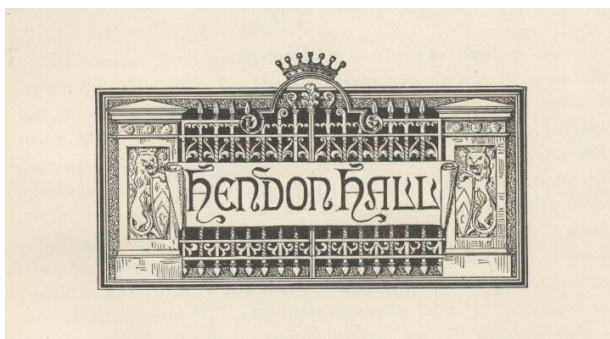 HENDON HALL